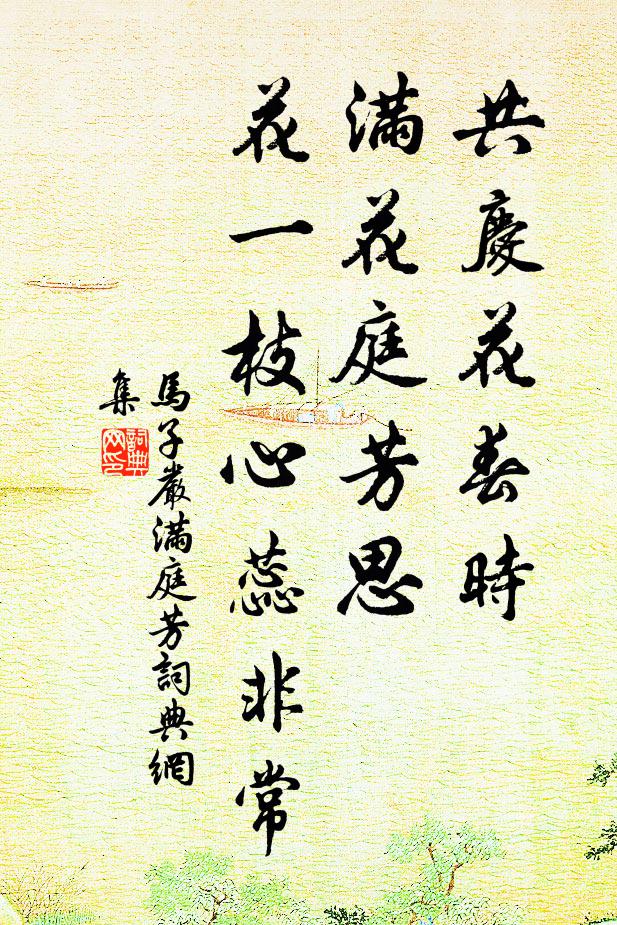 共慶花春時
滿花庭芳思
花一枝心蕊非常
馬子嚴滿庭芳詞典網
集
詞典
网印